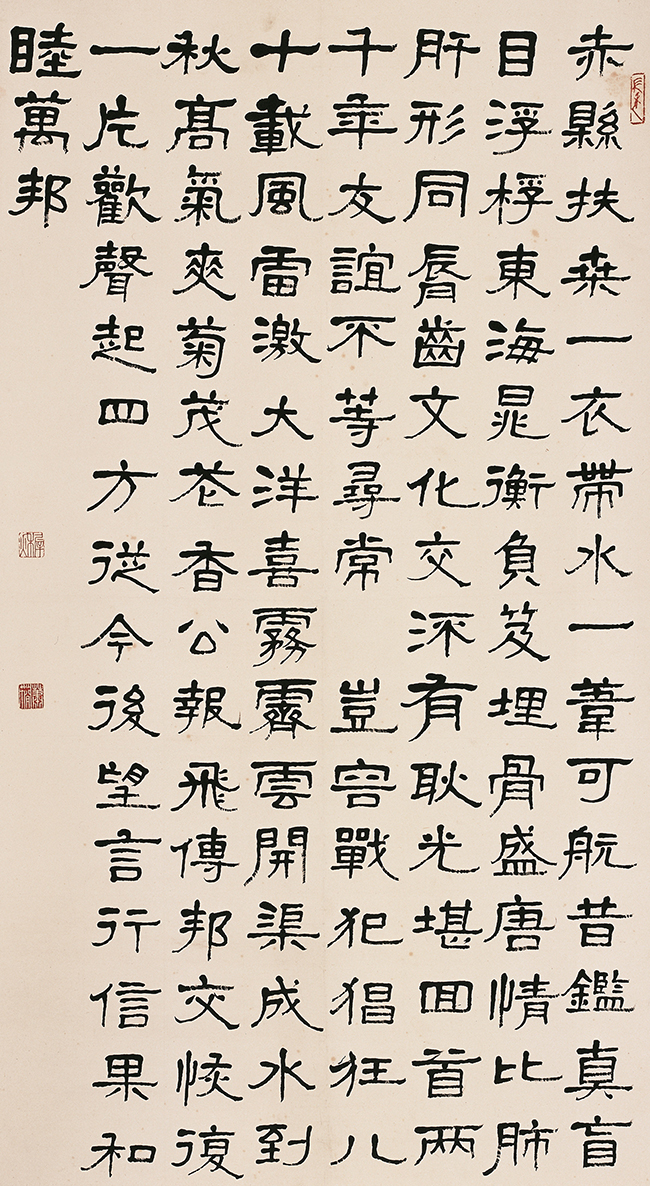 赤縣扶桒一衣帶水一葦可航昔鑑真盲
目浮桴東海晁衡負笈埋骨盛唐情比肺
肝形同脣齒文化交流有耿光堪回首两
千年友誼不等尋常 豈容戰犯猖狂八
十載風雷激大洋喜霧霽雲開渠成水到
秋髙氣爽菊茂花香公報飛傳邦交恢復
一片歡聲起四方從今後望言行信果和
睦萬邦